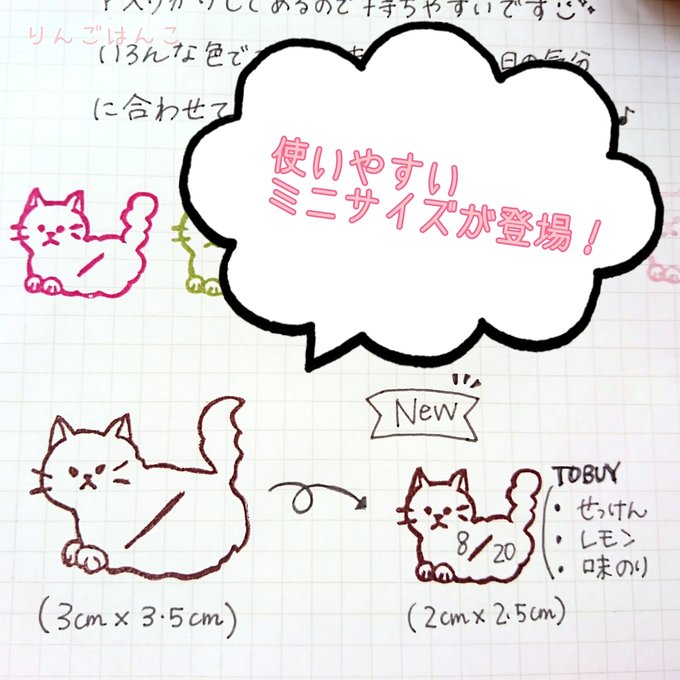 りんごはんこ
入りがりしてあるので持ちやすいです
いろんな色で
に合わせて
使いやすい
ミニサイズが登場！
New
TOBUY
・せっけん
・レモン
・味のり
8/20
(3cm x 3.5cm)
(2cm x 2.5cm)